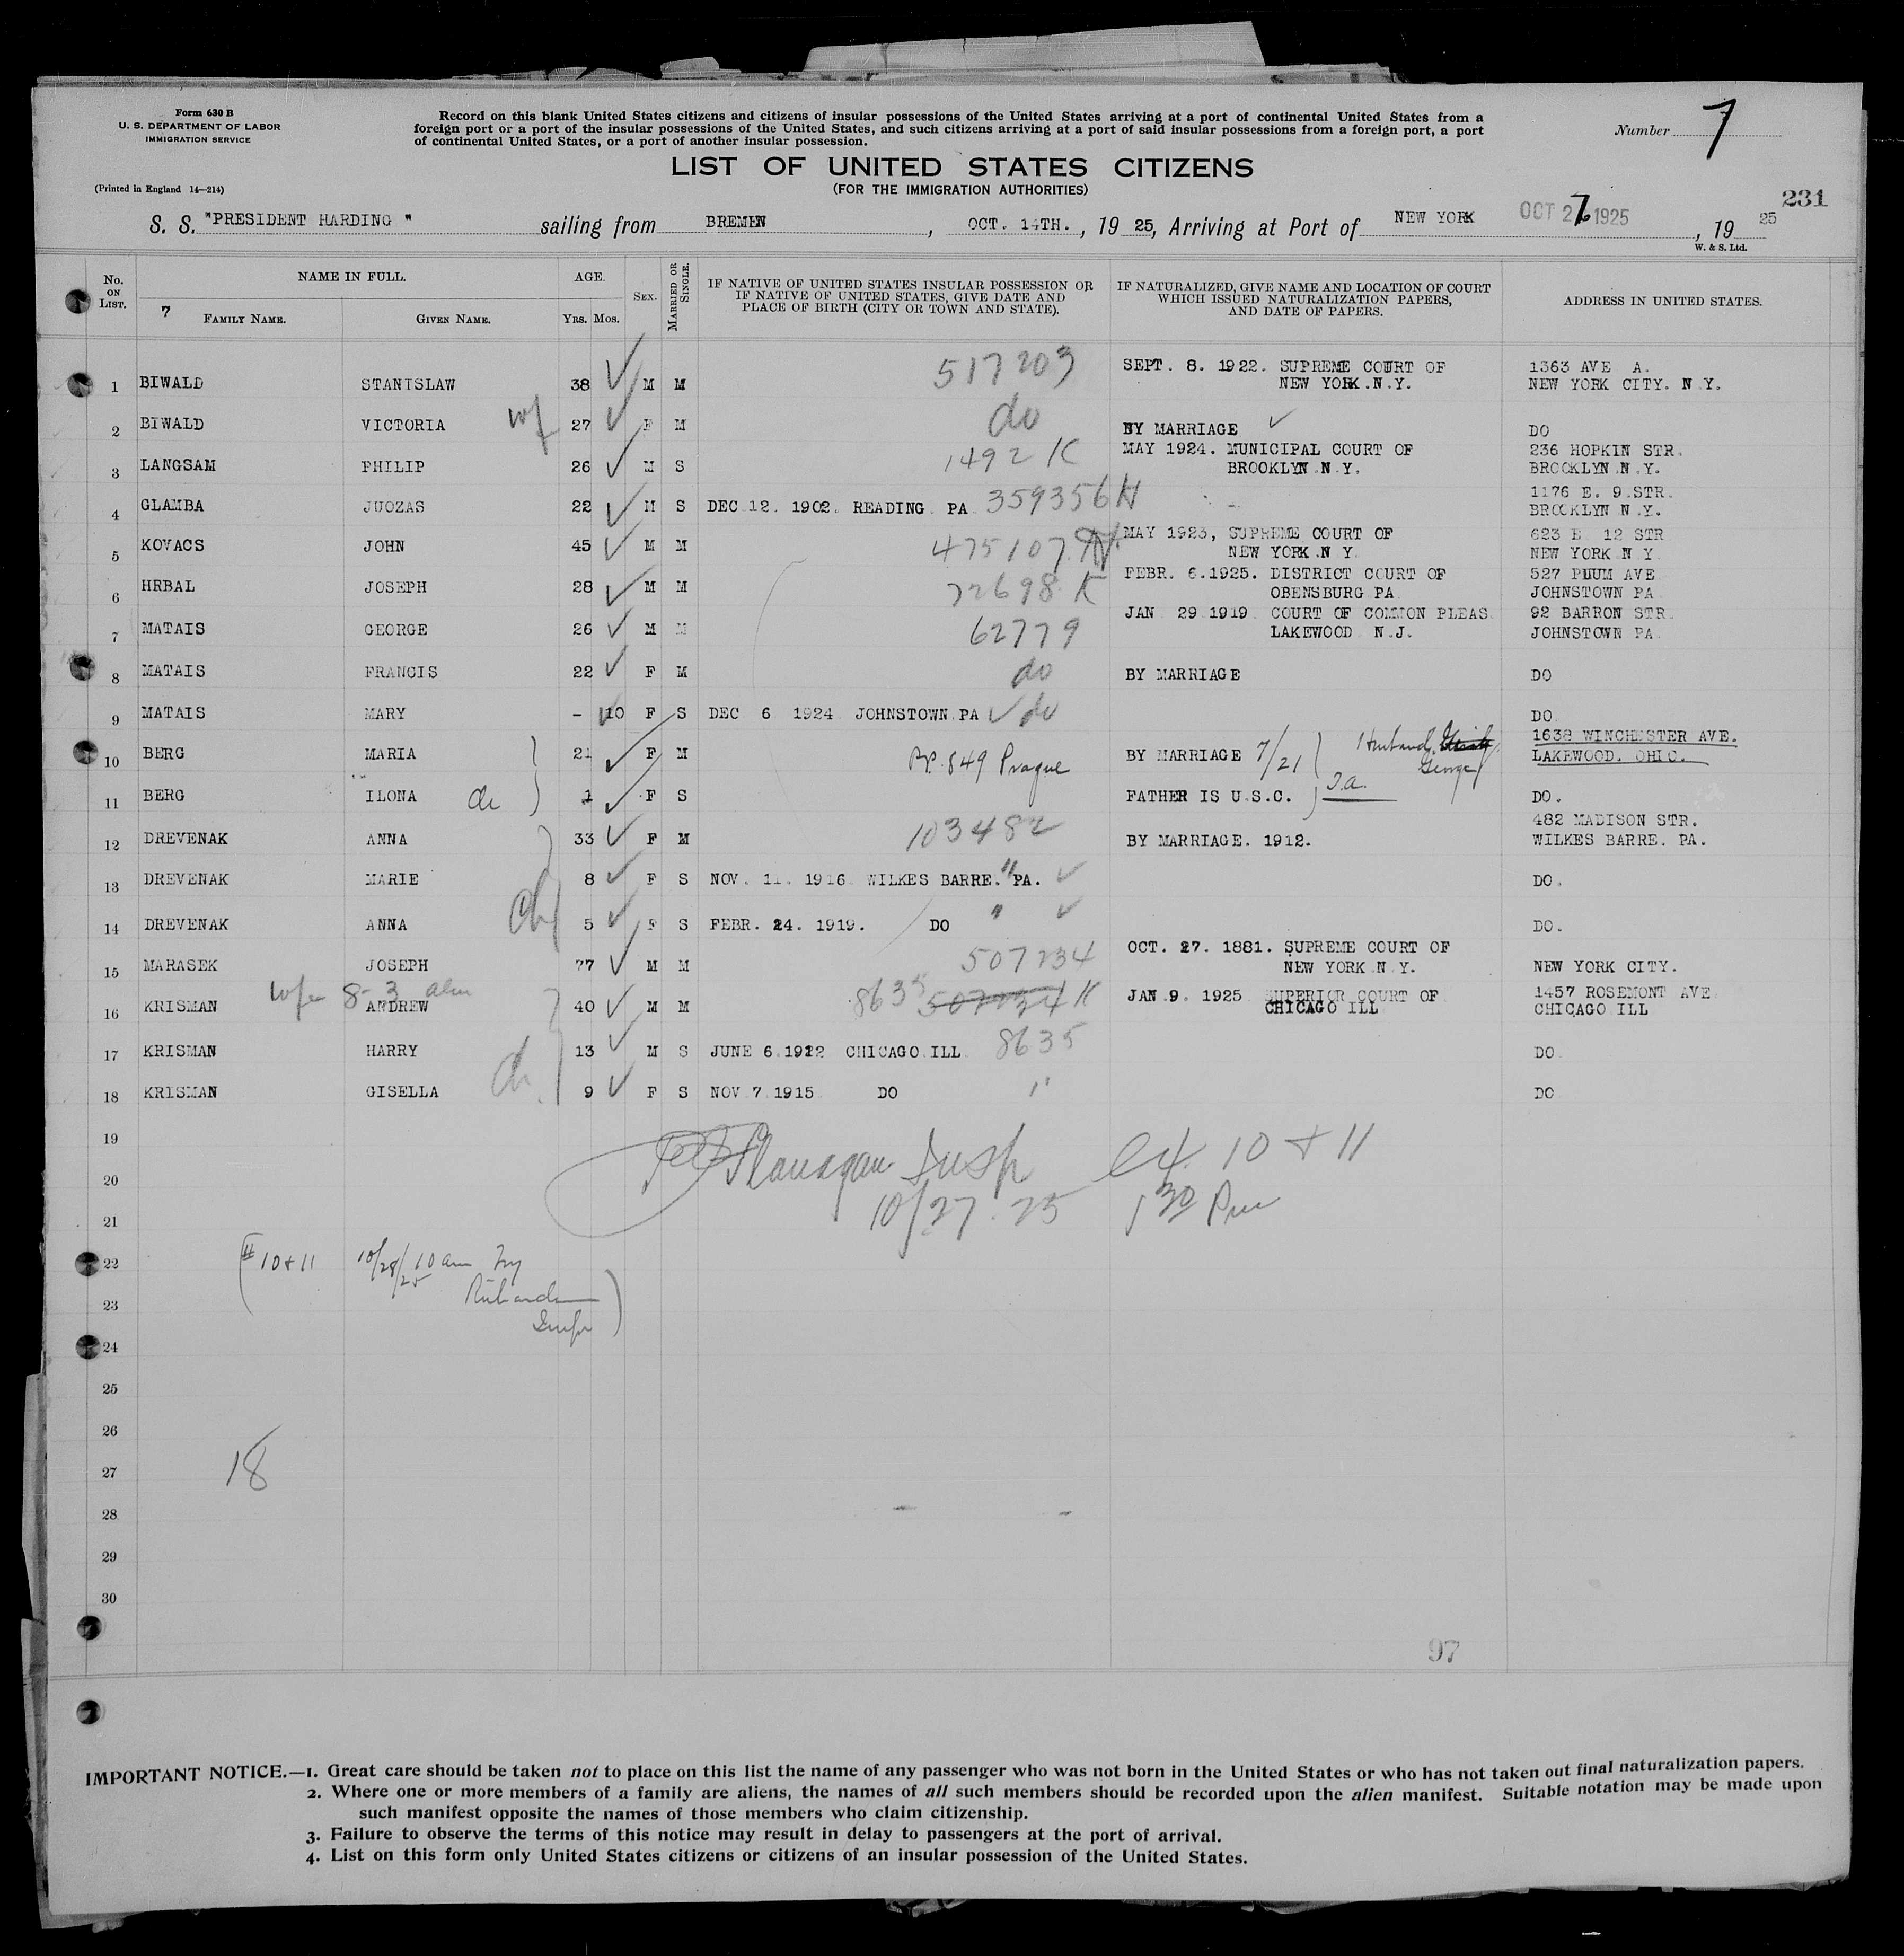 Form 630 B
U. S. DEPARTMENT OF LABOR
IMMIGRATION SERVICE
(Printed in England 14—214)
Record on this blank United States citizens and citizens of insular possessions of the United States arriving at a port of continental United States from a
foreign port or a port of the insular possessions of the United States, and such citizens arriving at a port of said insular possessions from a foreign port, a port
of continental United States, or a port of another insular possession.
Number 7
LIST OF UNITED STATES CITIZENS
(FOR THE IMMIGRATION AUTHORITIES)
231
S. S. "PRESIDENT HARDING " sailing from BREMEN, OCT. 14TH., 19 25, Arriving at Port of NEW YORK OCT 27 1925, 19 25
W. & S. Ltd.
No. ON LIST. NAME IN FULL. AGE. SEX. MARRIED OR SINGLE. IF NATIVE OF UNITED STATES INSULAR POSSESSION OR IF NATIVE OF UNITED STATES, GIVE DATE AND PLACE OF BIRTH (CITY OR TOWN AND STATE). IF NATURALIZED, GIVE NAME AND LOCATION OF COURT WHICH ISSUED NATURALIZATION PAPERS, AND DATE OF PAPERS. ADDRESS IN UNITED STATES.
7 FAMILY NAME. GIVEN NAME. YRS. MOS.
1 BIWALD STANISLAW 38 M M 517203 SEPT. 8. 1922. SUPREME COURT OF NEW YORK.N.Y. 1363 AVE A. NEW YORK CITY. N.Y.
2 BIWALD VICTORIA wf 27 F M do BY MARRIAGE DO
3 LANGSAM PHILIP 26 M S 1492 K MAY 1924. MUNICIPAL COURT OF BROOKLYN.N.Y. 236 HOPKIN STR. BROOKLYN.N.Y.
4 GLAMBA JUOZAS 22 M S DEC 12. 1902. READING PA 359356 H 1176 E. 9.STR. BROOKLYN N.Y.
5 KOVACS JOHN 45 M M 475107 MAY 1923, SUPREME COURT OF NEW YORK.N Y. 623 E 12 STR NEW YORK N Y
6 HRBAL JOSEPH 28 M M 72698 K FEBR. 6.1925. DISTRICT COURT OF OBENSBURG PA 527 PLUM AVE JOHNSTOWN PA
7 MATAIS GEORGE 26 M M 62779 JAN 29 1919 COURT OF COMMON PLEAS. LAKEWOOD N.J. 92 BARRON STR. JOHNSTOWN PA.
8 MATAIS FRANCIS 22 F M do BY MARRIAGE DO
9 MATAIS MARY - 10 F S DEC 6 1924 JOHNSTOWN.PA do DO
10 BERG MARIA 21 F M P.P. 849 Prague BY MARRIAGE 7/21 Husband George 1638 WINCHESTER AVE. LAKEWOOD. OHIO.
11 BERG ILONA ch 1 F S FATHER IS U.S.C. DO.
12 DREVENAK ANNA 33 F M 103482 BY MARRIAGE. 1912. 482 MADISON STR. WILKES BARRE. PA.
13 DREVENAK MARIE 8 F S NOV. 11. 1916 WILKES BARRE. PA. " DO.
14 DREVENAK ANNA ch 5 F S FEBR. 24. 1919. DO " DO.
15 MARASEK JOSEPH 77 M M 507234 OCT. 27. 1881. SUPREME COURT OF NEW YORK N Y. NEW YORK CITY.
wife 8-3 alien
16 KRISMAN ANDREW 40 M M 8635 507234 K JAN.9. 1925 SUPERIOR COURT OF CHICAGO ILL 1457 ROSEMONT AVE CHICAGO ILL
17 KRISMAN HARRY 13 M S JUNE 6.1912 CHICAGO.ILL. 8635 DO
18 KRISMAN GISELLA ch 9 F S NOV 7 1915 DO " DO
19
20 Flanagan Insp Ex 10 + 11
21 10/27 25 1 30 Pm
22 # 10+11 10/28/25 10 am
23 Insp
24
25
26
27 18
28
29
30
97
IMPORTANT NOTICE.—1. Great care should be taken not to place on this list the name of any passenger who was not born in the United States or who has not taken out final naturalization papers.
2. Where one or more members of a family are aliens, the names of all such members should be recorded upon the alien manifest. Suitable notation may be made upon
such manifest opposite the names of those members who claim citizenship.
3. Failure to observe the terms of this notice may result in delay to passengers at the port of arrival.
4. List on this form only United States citizens or citizens of an insular possession of the United States.